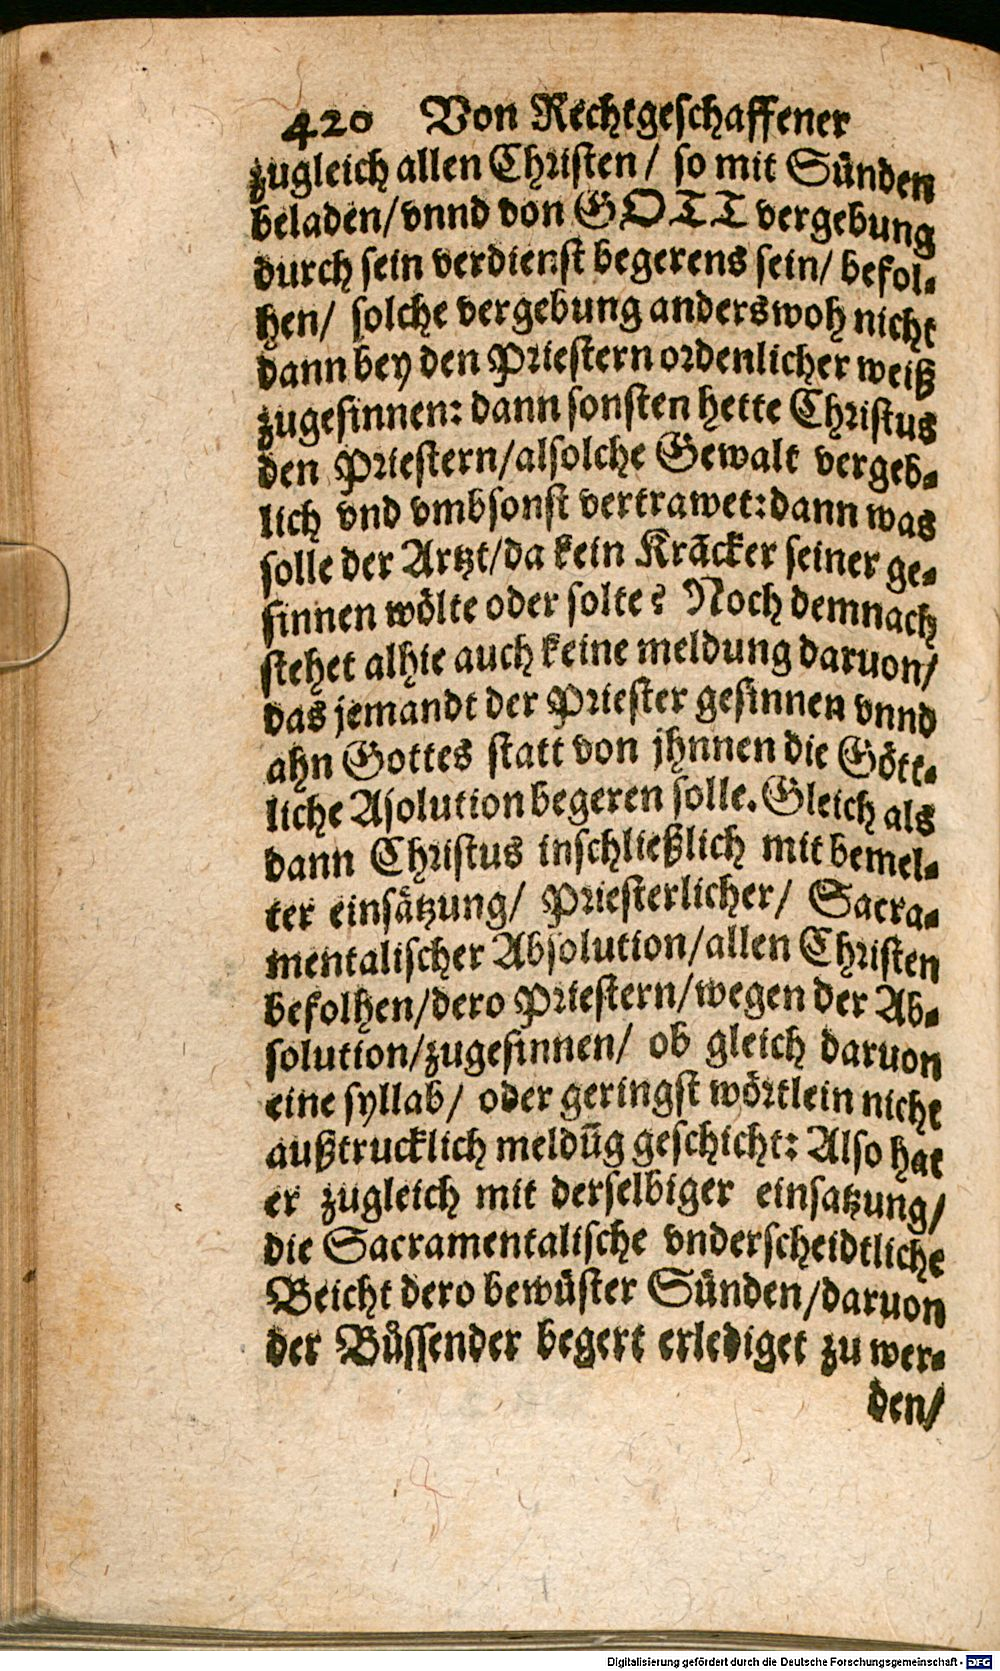 420 Von Rechtgeschaffener
zugleich allen Christen/ so mit Sünden
beladen/vnnd von GOTT vergebung
durch sein verdienst begerens sein/ befol⸗
hen/ solche vergebung anderswoh nicht
dann bey den Priestern ordenlicher weiß
zugesinnen: dann sonsten hette Christus
den Priestern/alsolche Gewalt vergeb⸗
lich vnd vmbsonst vertrawet: dann was
solle der Artzt/da kein Kräcker seiner ge⸗
sinnen wölte oder solte? Noch demnach
stehet alhie auch keine meldung daruon/
das jemandt der Priester gesinnen vnnd
ahn Gottes statt von jhnnen die Gött⸗
liche Asolution begeren solle. Gleich als
dann Christus inschließlich mit bemel⸗
ter einsätzung/ Priesterlicher/ Sacra⸗
mentalischer Absolution/allen Christen
befolhen/dero Priestern/wegen der Ab⸗
solution/zugesinnen/ ob gleich daruon
eine syllab/ oder geringst wörtlein nicht
außtrucklich meldūg geschicht: Also hat
er zugleich mit derselbiger einsatzung/
die Sacramentalische vnderscheidtliche
Beicht dero bewüster Sünden/daruon
der Büssender begert erlediget zu wer⸗
den/
Digitalisierung gefördert durch die Deutsche Forschungsgemeinschaft - DFG